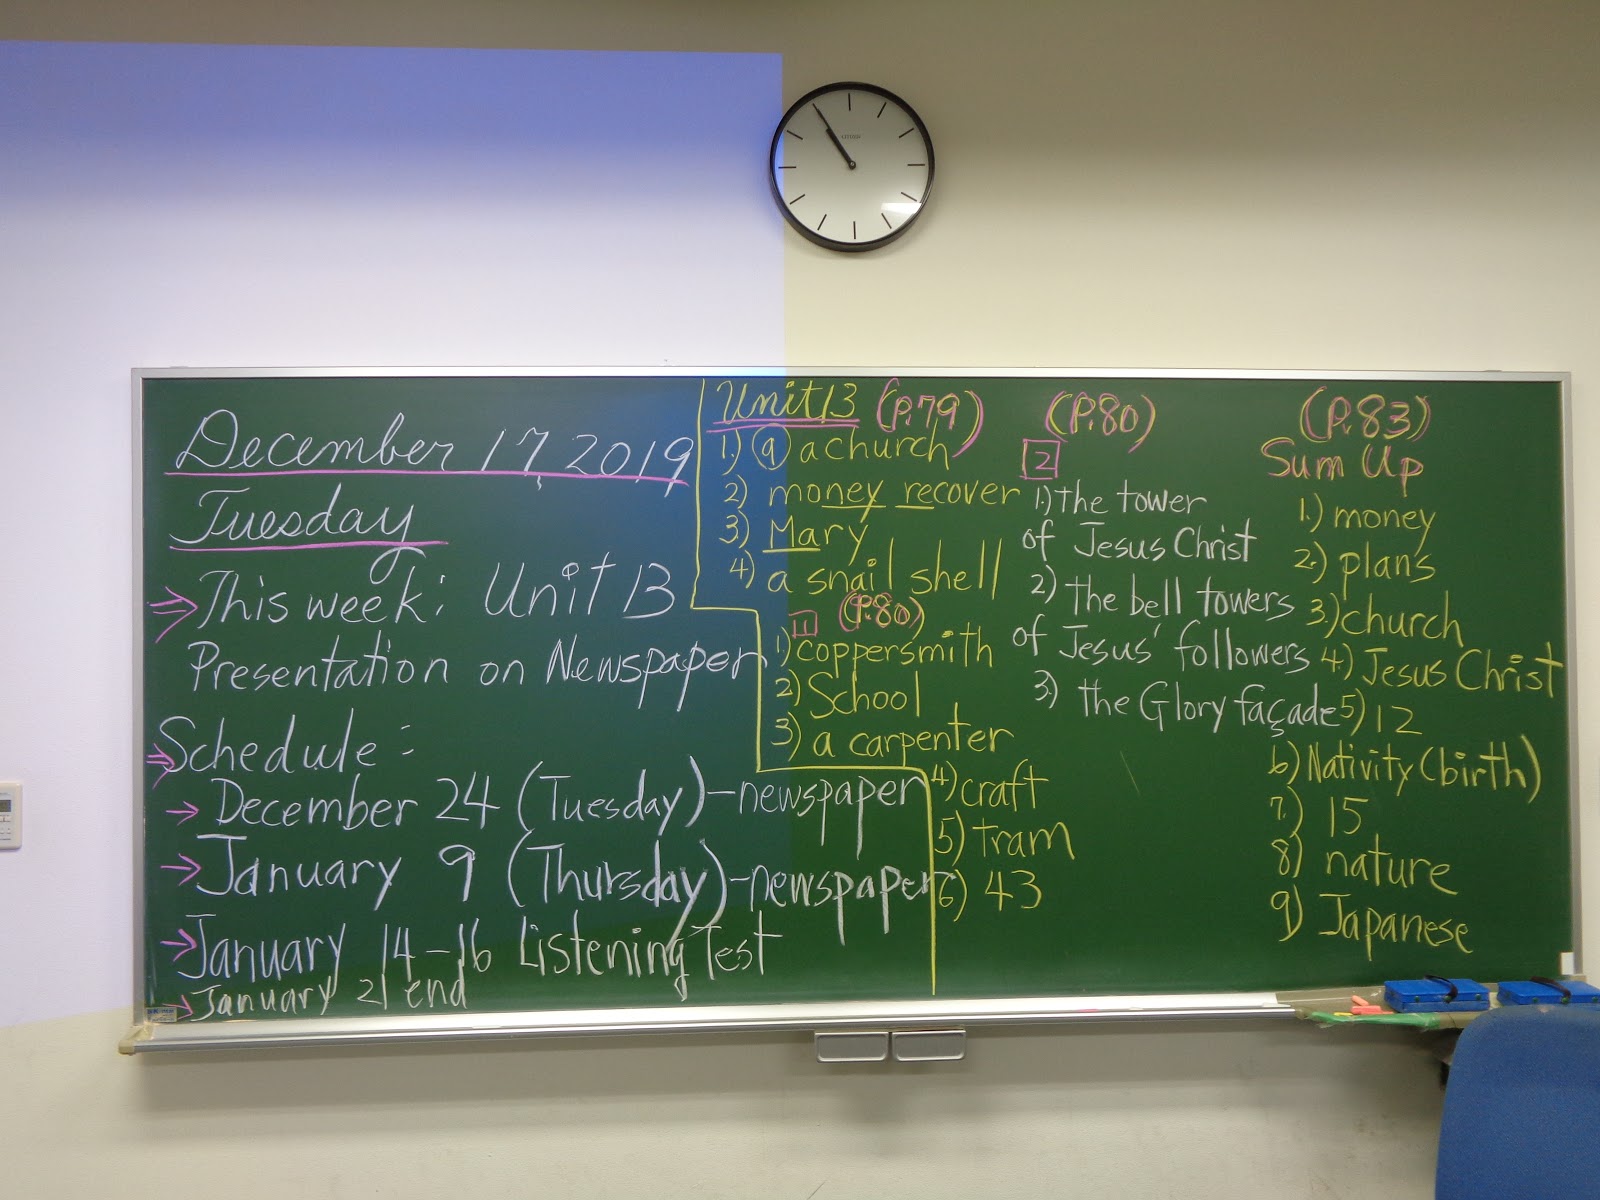 December 17, 2019
Tuesday
⇒ This week: Unit 13
Presentation on Newspaper
⇒ Schedule:
→ December 24 (Tuesday) - newspaper
→ January 9 (Thursday) - newspaper
→ January 14 - 16 Listening Test
→ January 21 end
Unit 13 (P.79)
1.) a a church
2) money recover
3) Mary
4) a snail shell
1 (P.80)
1) coppersmith
2) School
3) a carpenter
4) craft
5) tram
6) 43
(P.80)
2
1.) the tower
of Jesus Christ
2) the bell towers
of Jesus' followers
3.) the Glory façade
(P.83)
Sum Up
1.) money
2.) plans
3.) church
4.) Jesus Christ
5) 12
6) Nativity (birth)
7.) 15
8) nature
9) Japanese
CITIZEN